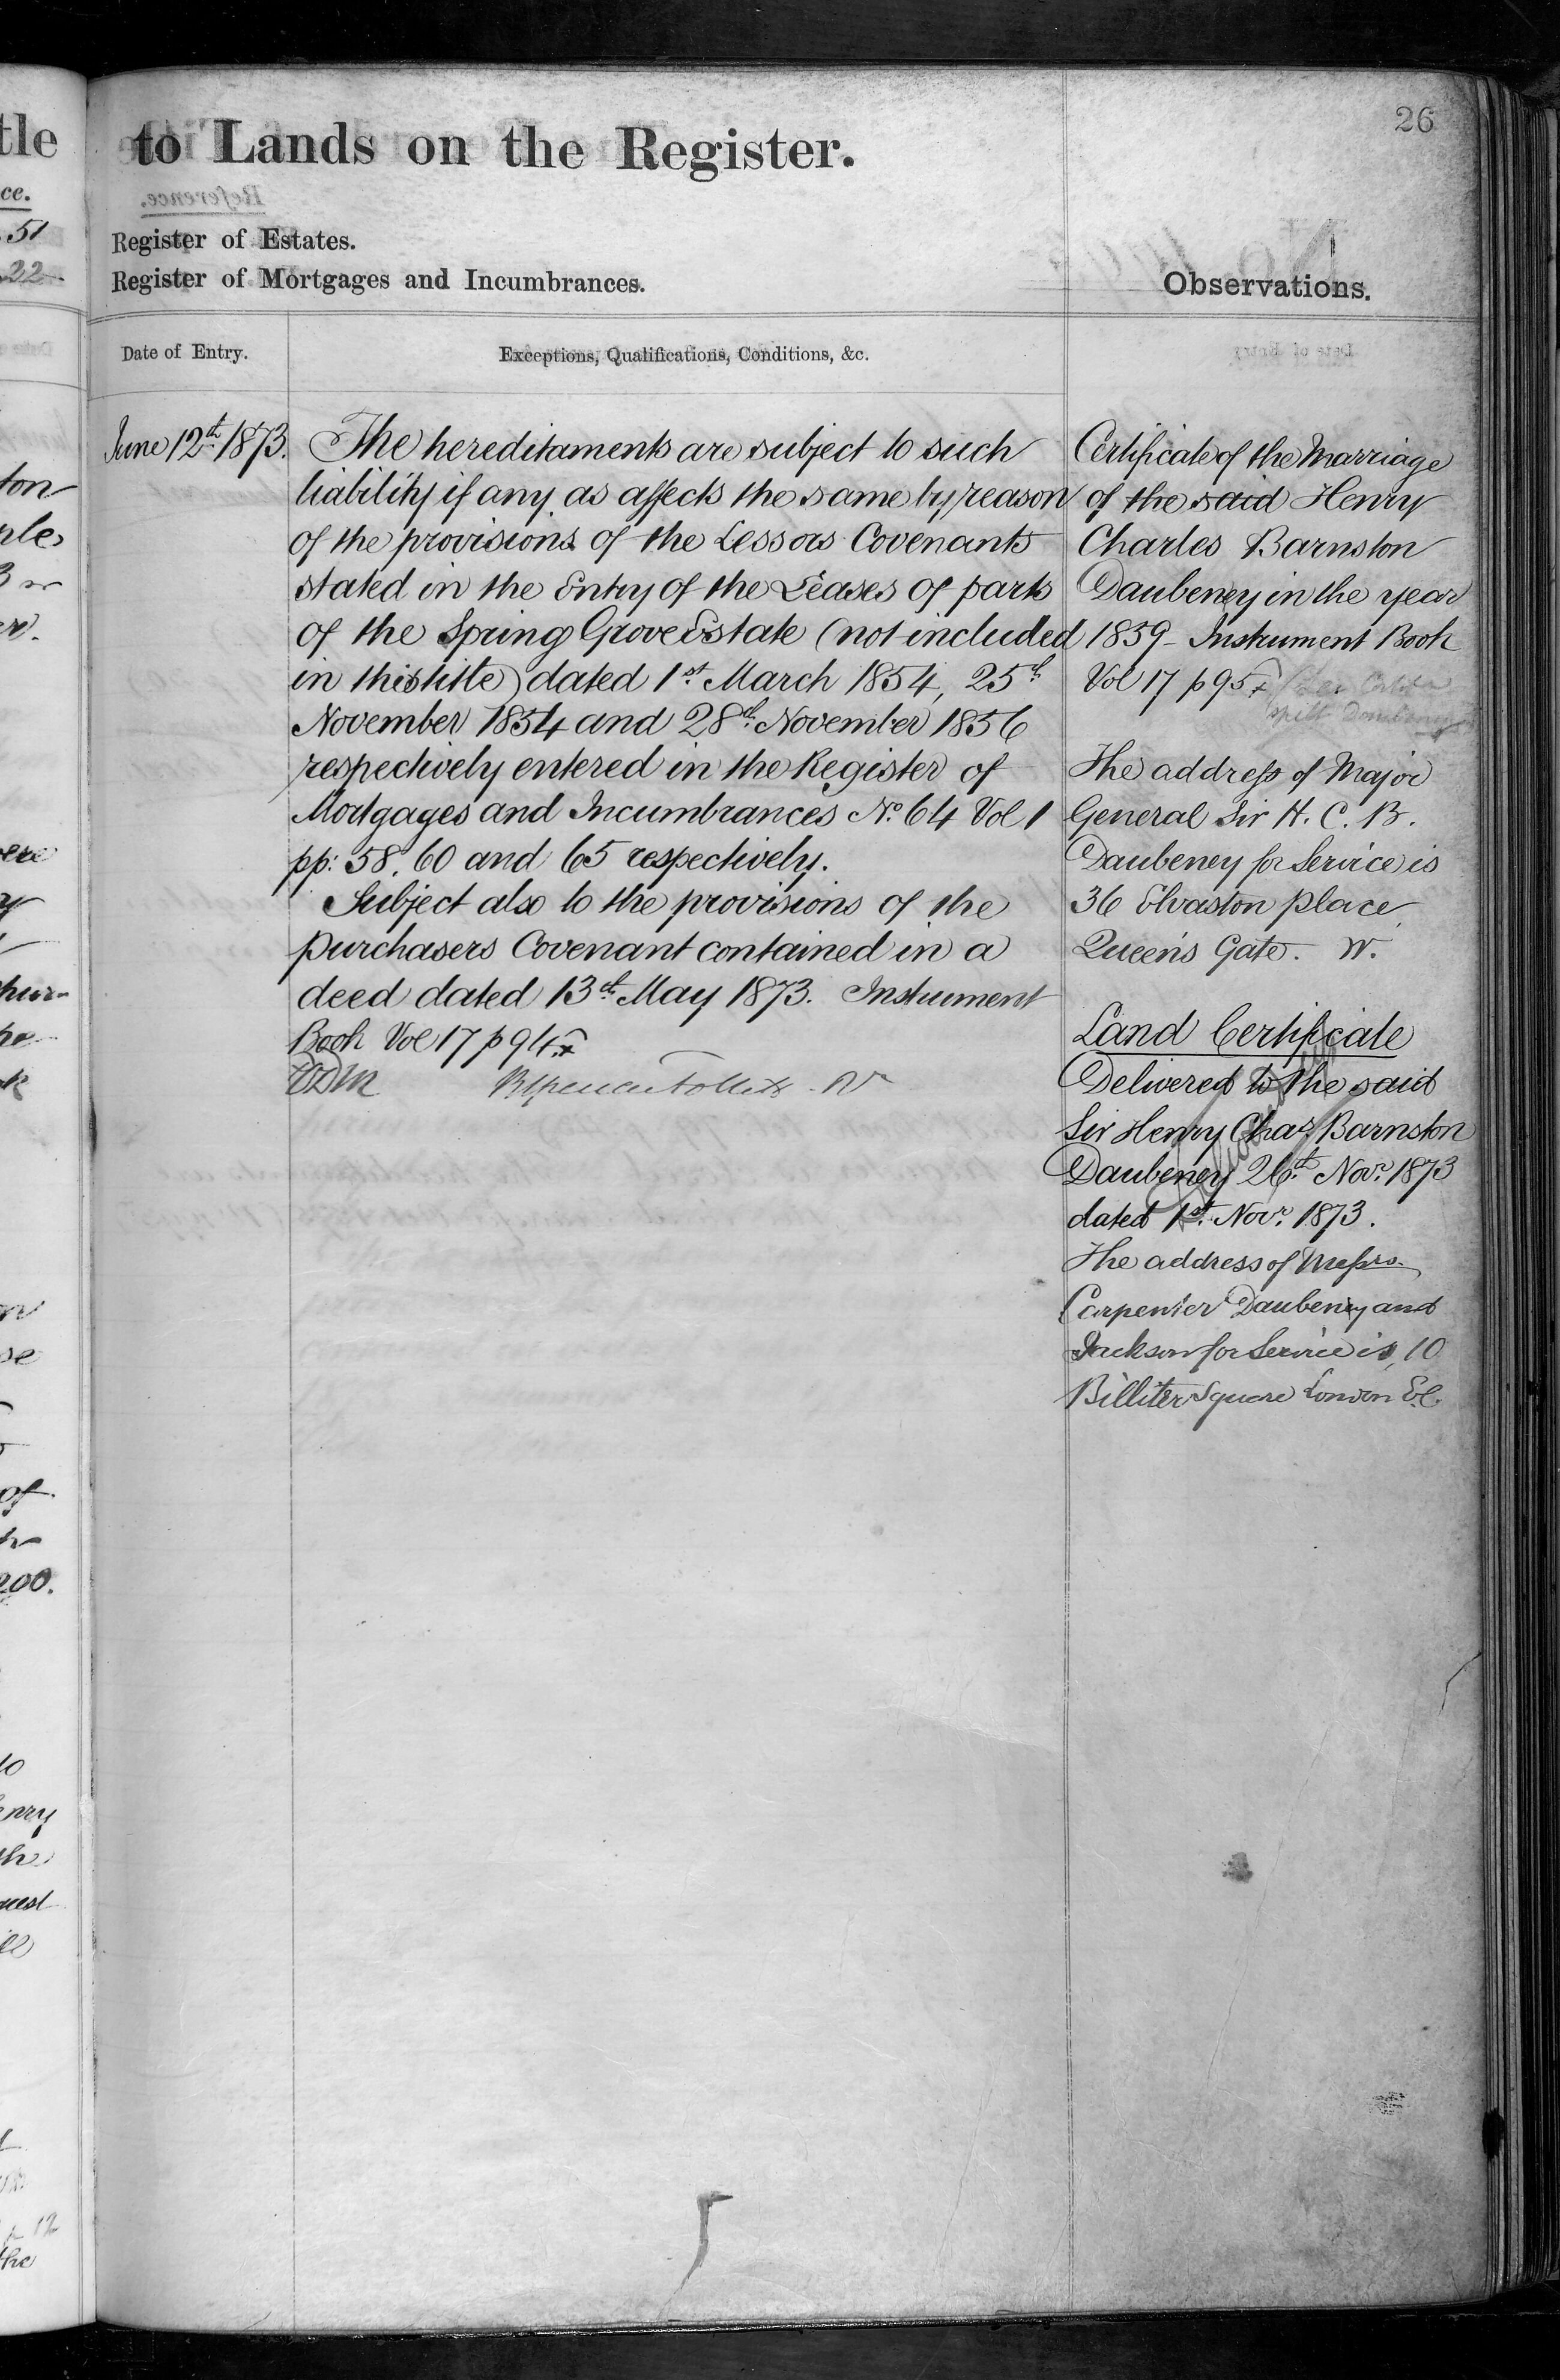 to Lands on the Register.
26
Register of Estates.
Register of Mortgages and Incumbrances.
Observations.
Date of Entry.
Exceptions, Qualifications, Conditions, &c.
June 12th 1873.
The hereditaments are subject to such
liability if any as affects the same by reason
of the provisions of the Lessors Covenants
stated in the Entry of the Leases of parts
of the Spring Grove Estate (not included
in this title) dated 1st March 1854, 25th
November 1854 and 28th November 1856
respectively entered in the Register of
Mortgages and Incumbrances No. 64 Vol 1
pp: 58. 60 and 65 respectively.
Subject also to the provisions of the
purchasers Covenant contained in a
deed dated 13th May 1873. Instrument
Book Vol 17 p 94.
Certificate of the Marriage
of the said Henry
Charles Barnston
Daubeney in the year
1859 - Instrument Book
Vol 17 p 95
The address of Major
General Sir H. C. B.
Daubeney for Service is
36 Elvaston place
Queens Gate. W.
Land Certificate
Delivered to the said
Sir Henry Chas. Barnston
Daubeney 26th Novr. 1873
dated 1st Novr. 1873.
The address of Messrs.
Carpenter Daubeney and
Jackson for Service is, 10
Billiter Square London E.C.
tle
ce.
51
22
200.